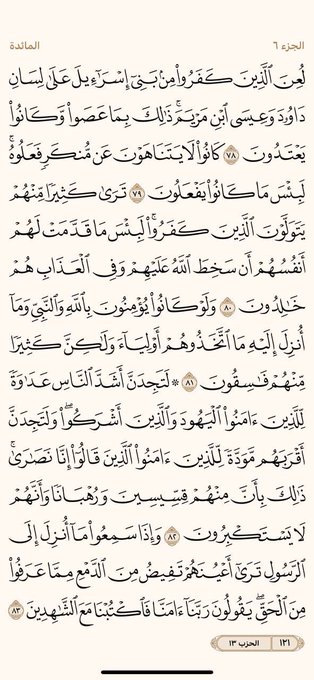 الجزء ٦ المائدة
لُعِنَ ٱلَّذِينَ كَفَرُواْ مِنۢ بَنِيٓ إِسۡرَٰٓءِيلَ عَلَىٰ لِسَانِ
دَاوُۥدَ وَعِيسَى ٱبۡنِ مَرۡيَمَۚ ذَٰلِكَ بِمَا عَصَواْ وَّكَانُواْ
يَعۡتَدُونَ ٧٨ كَانُواْ لَا يَتَنَاهَوۡنَ عَن مُّنكَرٖ فَعَلُوهُۚ
لَبِئۡسَ مَا كَانُواْ يَفۡعَلُونَ ٧٩ تَرَىٰ كَثِيرٗا مِّنۡهُمۡ
يَتَوَلَّوۡنَ ٱلَّذِينَ كَفَرُواْۚ لَبِئۡسَ مَا قَدَّمَتۡ لَهُمۡ
أَنفُسُهُمۡ أَن سَخِطَ ٱللَّهُ عَلَيۡهِمۡ وَفِي ٱلۡعَذَابِ هُمۡ
خَٰلِدُونَ ٨٠ وَلَوۡ كَانُواْ يُؤۡمِنُونَ بِٱللَّهِ وَٱلنَّبِيِّ وَمَآ
أُنزِلَ إِلَيۡهِ مَا ٱتَّخَذُوهُمۡ أَوۡلِيَآءَ وَلَٰكِنَّ كَثِيرٗا
مِّنۡهُمۡ فَٰسِقُونَ ٨١ ۞ لَتَجِدَنَّ أَشَدَّ ٱلنَّاسِ عَدَٰوَةٗ
لِّلَّذِينَ ءَامَنُواْ ٱلۡيَهُودَ وَٱلَّذِينَ أَشۡرَكُواْۖ وَلَتَجِدَنَّ
أَقۡرَبَهُم مَّوَدَّةٗ لِّلَّذِينَ ءَامَنُواْ ٱلَّذِينَ قَالُوٓاْ إِنَّا نَصَٰرَىٰۚ
ذَٰلِكَ بِأَنَّ مِنۡهُمۡ قِسِّيسِينَ وَرُهۡبَانٗا وَأَنَّهُمۡ
لَا يَسۡتَكۡبِرُونَ ٨٢ وَإِذَا سَمِعُواْ مَآ أُنزِلَ إِلَى
ٱلرَّسُولِ تَرَىٰٓ أَعۡيُنَهُمۡ تَفِيضُ مِنَ ٱلدَّمۡعِ مِمَّا عَرَفُواْ
مِنَ ٱلۡحَقِّۖ يَقُولُونَ رَبَّنَآ ءَامَنَّا فَٱكۡتُبۡنَا مَعَ ٱلشَّٰهِدِينَ ٨٣
١٢١ الحزب ١٣